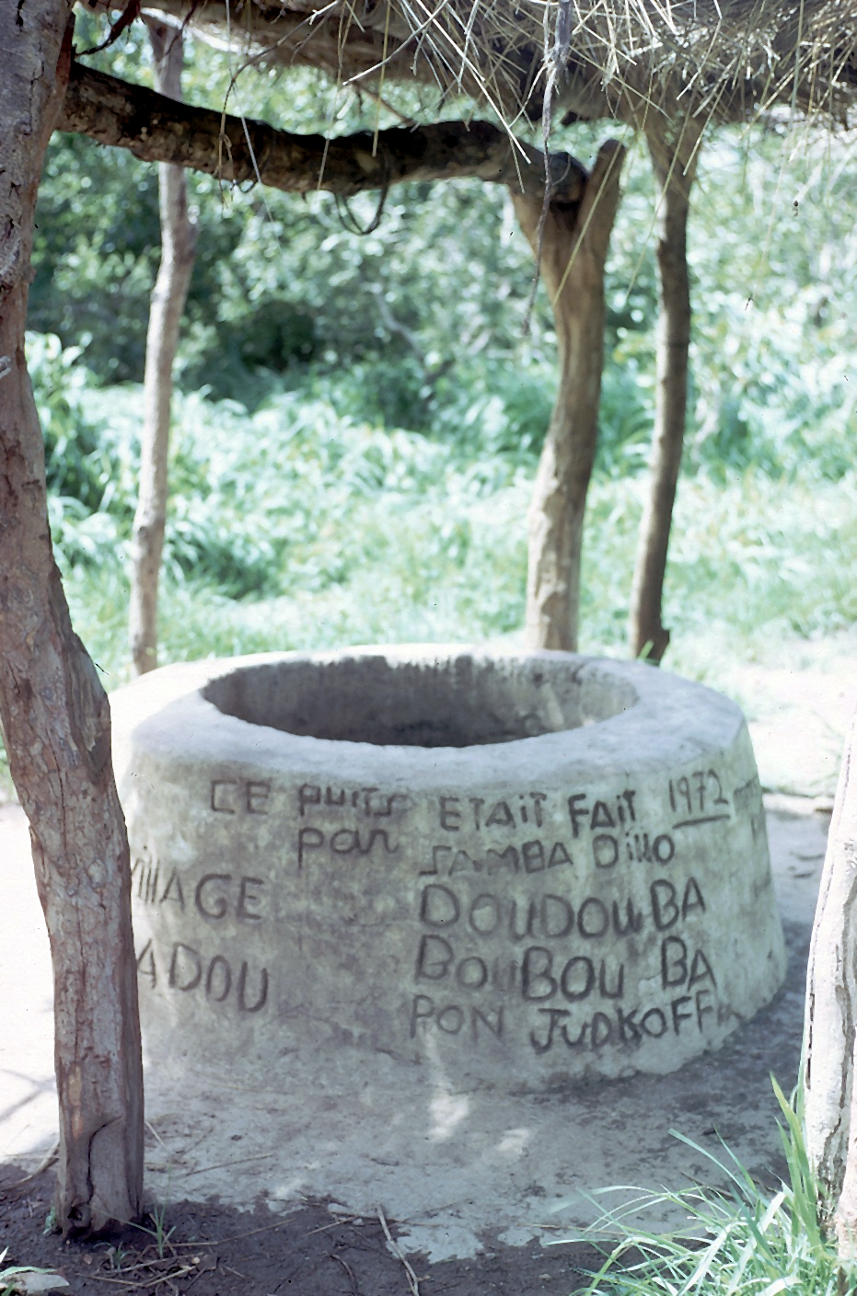 CE puits ETAIT FAIT 1972
par SAMBA Dillo
VillAGE DOUDOU BA
ADOU BOUBOU BA
RON JUDKOFF